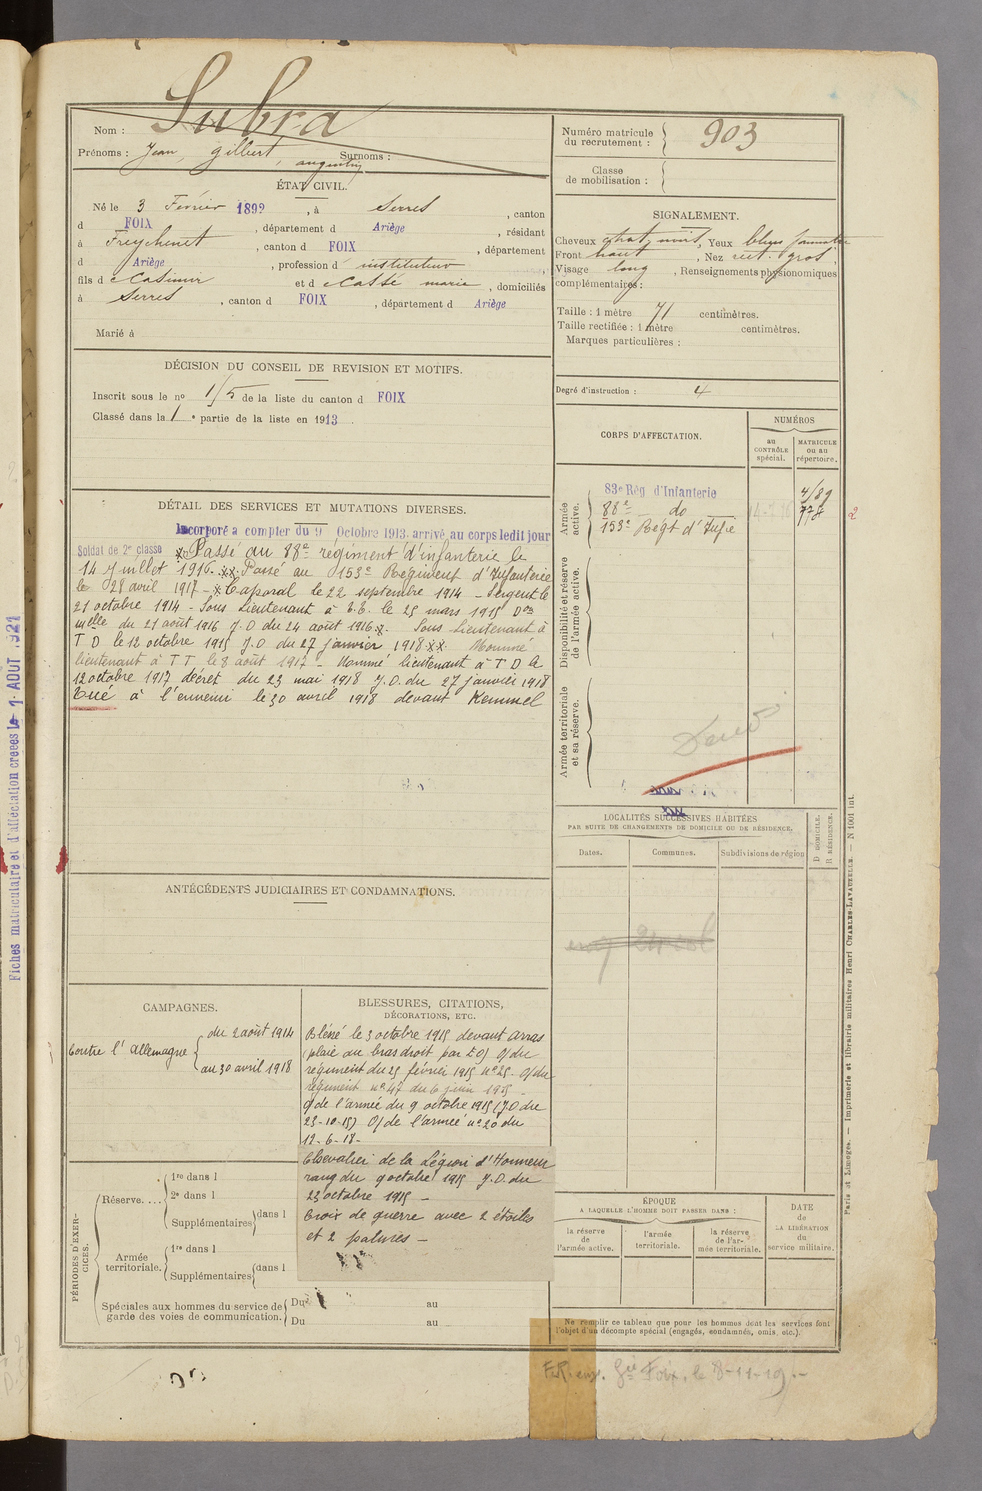 Nom : Subra
Prénoms : Jean, Gilbert, augustin Surnoms :
ÉTAT CIVIL.
Né le 3 Février 1892, à Serres, canton
d FOIX, département d Ariège, résidant
à Freychenet, canton d FOIX, département
d Ariège, profession d instituteur
fils d Casimir et d Cassé marie, domiciliés
à Serres, canton d FOIX, département d Ariège
Marié à
DÉCISION DU CONSEIL DE REVISION ET MOTIFS.
Inscrit sous le nº 15 de la liste du canton d FOIX
Classé dans la 1e partie de la liste en 1913.
DÉTAIL DES SERVICES ET MUTATIONS DIVERSES.
Incorporé a compter du 9 Octobre 1913. arrivé au corps ledit jour
Soldat de 2e classe Passé au 88e régiment d'infanterie le
14 Juillet 1916. Passé au 153e Regiment d'Infanterie
le 28 avril 1917 - Caporal le 22 septembre 1914 - Sergent le
21 octobre 1914 - Sous Lieutenant à T.T. le 25 mars 1915 Don
melle du 21 août 1916 J.O du 24 août 1916. Sous Lieutenant à
T D le 12 octobre 1915 J.O du 27 janvier 1918 Nommé
lieutenant à T T le 8 août 1917 - Nommé lieutenant à T D le
12 octobre 1917 décret du 23 mai 1918 J.O. du 27 janvier 1918
Tué à l'ennemi le 30 avril 1918 devant Kemmel
ANTÉCÉDENTS JUDICIAIRES ET CONDAMNATIONS.
CAMPAGNES.
Contre l'Allemagne { du 2 août 1914
au 30 avril 1918
BLESSURES, CITATIONS,
DÉCORATIONS, ETC.
Blessé le 3 octobre 1915 devant Arras
(plaie au bras droit par EO) O/du
régiment du 25 février 1915 nº 25 - O/du
régiment nº 47 du 6 juin 1915
O/de l'armée du 9 octobre 1915 (J.O du
23-10-15) O/de l'armée nº 20 du
12-6-18-
Chevalier de la Légion d'Honneur
rang du 9 octobre 1915 J.O. du
23 octobre 1915 -
Croix de guerre avec 2 étoiles
et 2 palmes -
PÉRIODES D'EXERCICES.
Réserve....
1re dans l
2e dans l
Supplémentaires dans l
Armée territoriale.
1re dans l
Supplémentaires dans l
Spéciales aux hommes du service de garde des voies de communication.
Du au
Du au
Numéro matricule du recrutement : 903
Classe de mobilisation :
SIGNALEMENT.
Cheveux chat. noir, Yeux bleus jaunatre
Front haut, Nez rect. gros
Visage long, Renseignements physionomiques
complémentaires :
Taille : 1 mètre 71 centimètres.
Taille rectifiée : 1 mètre centimètres.
Marques particulières :
Degré d'instruction : 4
CORPS D'AFFECTATION.
NUMÉROS
au CONTRÔLE spécial.
MATRICULE ou au répertoire.
Armée active.
83e Rég d'Infanterie 4189
88e do 778
153e Regt d'Infie
2
Disponibilité et réserve de l'armée active.
Armée territoriale et sa réserve.
LOCALITÉS SUCCESSIVES HABITÉES
PAR SUITE DE CHANGEMENTS DE DOMICILE OU DE RÉSIDENCE.
Dates. Communes. Subdivisions de région
D DOMICILE.
R RÉSIDENCE.
ÉPOQUE
A LAQUELLE L'HOMME DOIT PASSER DANS :
la réserve de l'armée active.
l'armée territoriale.
la réserve de l'armée territoriale.
DATE de LA LIBÉRATION du service militaire.
Ne remplir ce tableau que pour les hommes dont les services font
l'objet d'un décompte spécial (engagés, condamnés, omis, etc.).
Foix, le 8-11-19.-
Paris et Limoges. — Imprimerie et librairie militaires Henri CHARLES-LAVAUZELLE. — N 1061 int.
Fiches matriculaire et d'affectation créées le 1 AOUT 1921